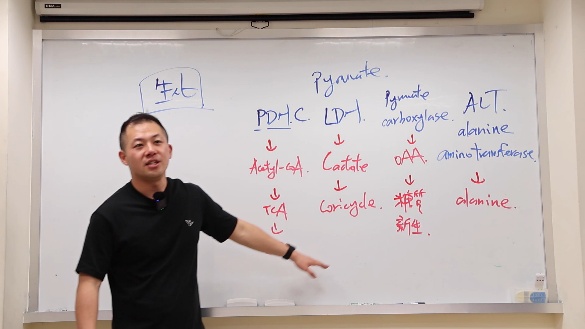 生化
Pyruvate.
PDH.C.
LDH.
Pyruvate
carboxylase.
ALT.
alanine
aminotransferase.
↓
↓
↓
↓
Acetyl-CoA.
Lactate
OAA.
alanine.
↓
↓
↓
TCA
Coricycle.
糖質
新生.
↓